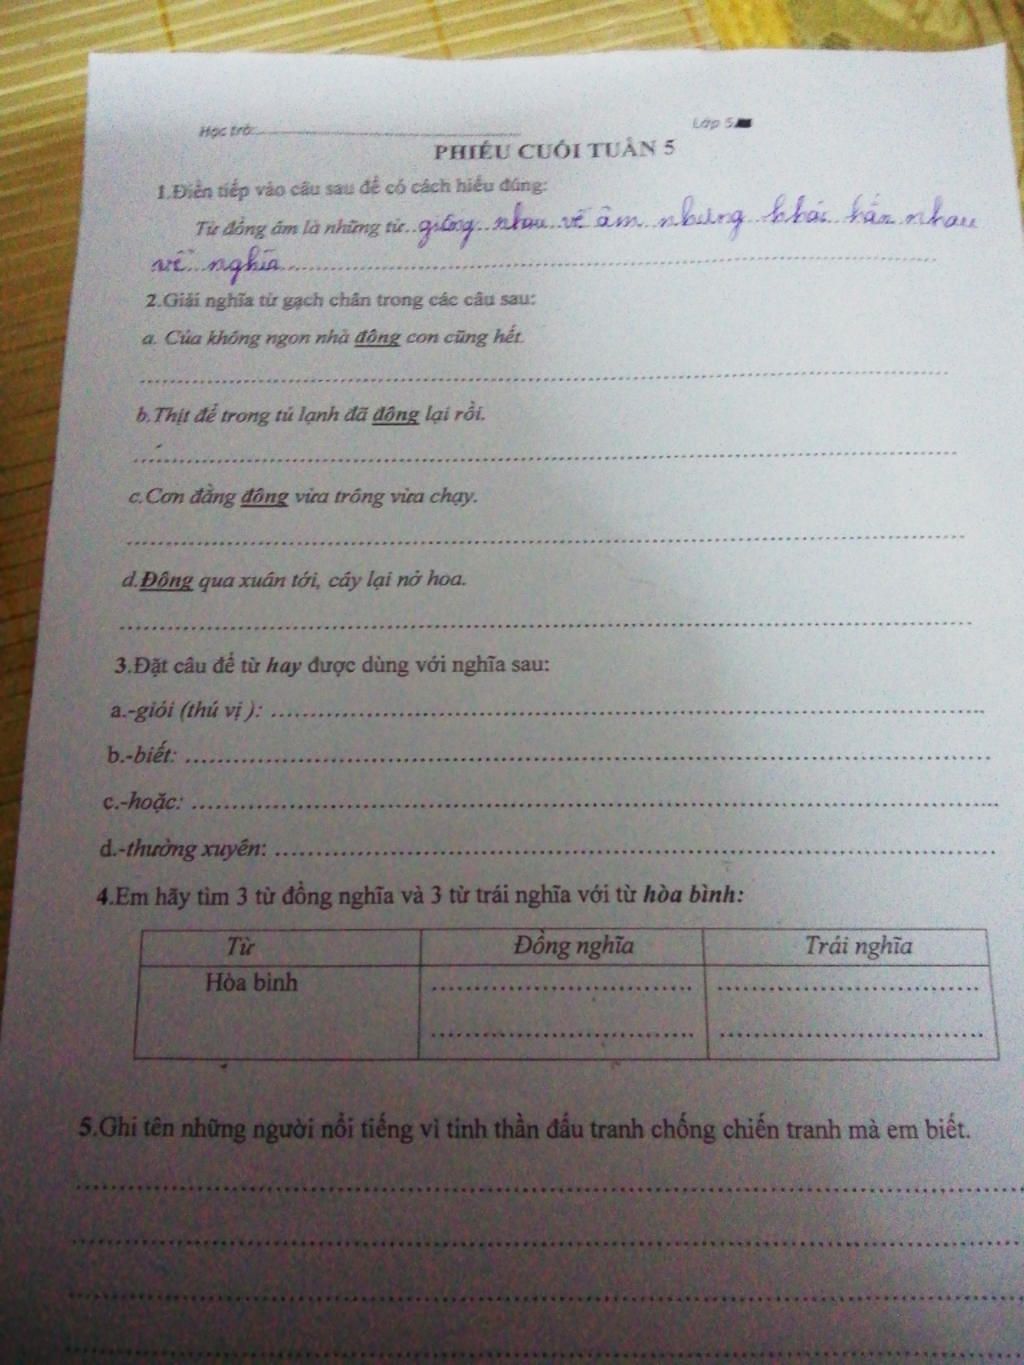 Học trò:
Lớp 5
PHIẾU CUỐI TUẦN 5
1.Điền tiếp vào câu sau để có cách hiểu đúng:
Từ đồng âm là những từ giống nhau về âm nhưng khác hẳn nhau
về nghĩa
2.Giải nghĩa từ gạch chân trong các câu sau:
a. Của không ngon nhà đông con cũng hết.
b.Thịt để trong tủ lạnh đã đông lại rồi.
c.Cơn đằng đông vừa trông vừa chạy.
d.Đông qua xuân tới, cây lại nở hoa.
3.Đặt câu để từ hay được dùng với nghĩa sau:
a.-giỏi (thú vị ):
b.-biết:
c.-hoặc:
d.-thường xuyên:
4.Em hãy tìm 3 từ đồng nghĩa và 3 từ trái nghĩa với từ hòa bình:
Từ Đồng nghĩa Trái nghĩa
Hòa bình
5.Ghi tên những người nổi tiếng vì tinh thần đấu tranh chống chiến tranh mà em biết.